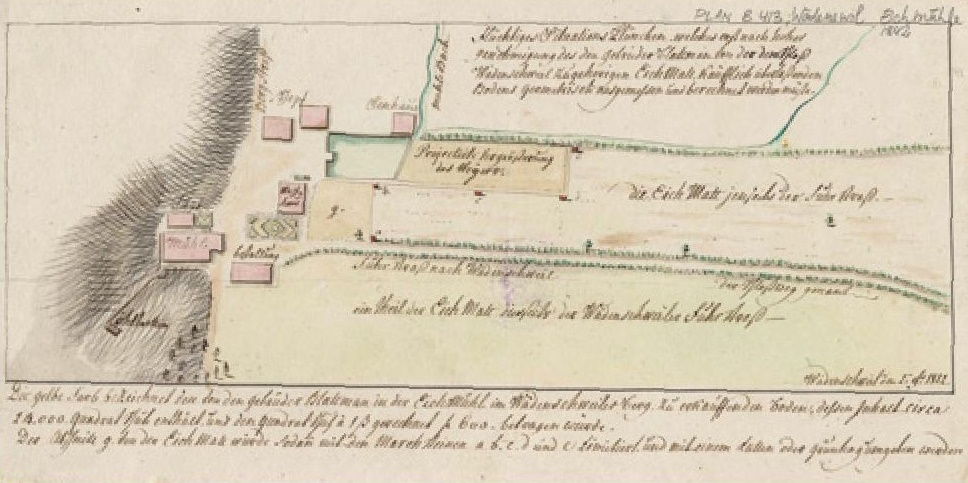 PLAN B 413. Wädenswil Eichmühle
1812
Flüchtiges Situations Plänchen, welches erst nach hoher
genehmigung des den gebrüder Blattman von der dem Schloß
Wädenschweil zugehörigen Esch Matt käufflich überlassenden
Bodens geometrisch ausgemessen und berechnet werden müste.
Mühle Bach
Projectirte Vergrösserung
des Weyers.
die Esch Matt jenseits der Fuhr Straß. —
g.
Mühle
Fuhr Straß nach Wädenschweil
der Schloßweg genant
ein Theil der Esch Matt der Wädenschweiler Fuhr Straß —
Wädenschweil den 5. 1812.
Die gelbe Farb bezeichnet den von den gebrüder Blattman in der Esch Mühl im Wädenschweiler berg. zu erkauffenden boden, dessen Inhalt circa
14,000 Quadrat Schuh enthielt, und den Quadrat Schuh à 1 ß gerechnet f. 600. betragen würde.
Der g. von der Esch Matt würde sodan mit den March steinen a. b. c. d und e limitiert und mit einem oder grünhag umgeben werden